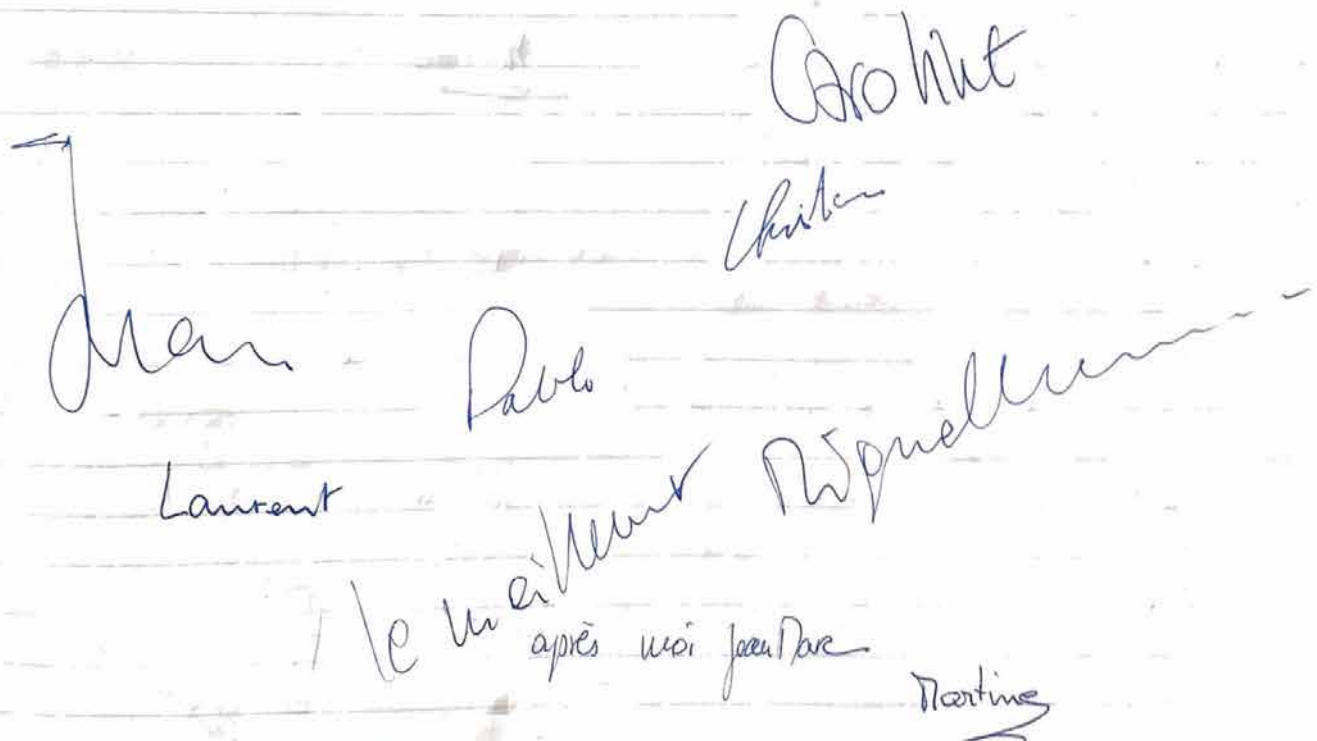 Caroline
Christian
Juan
Pablo
Laurent
le meilleur Miguel
après moi Jean Marc
Martine